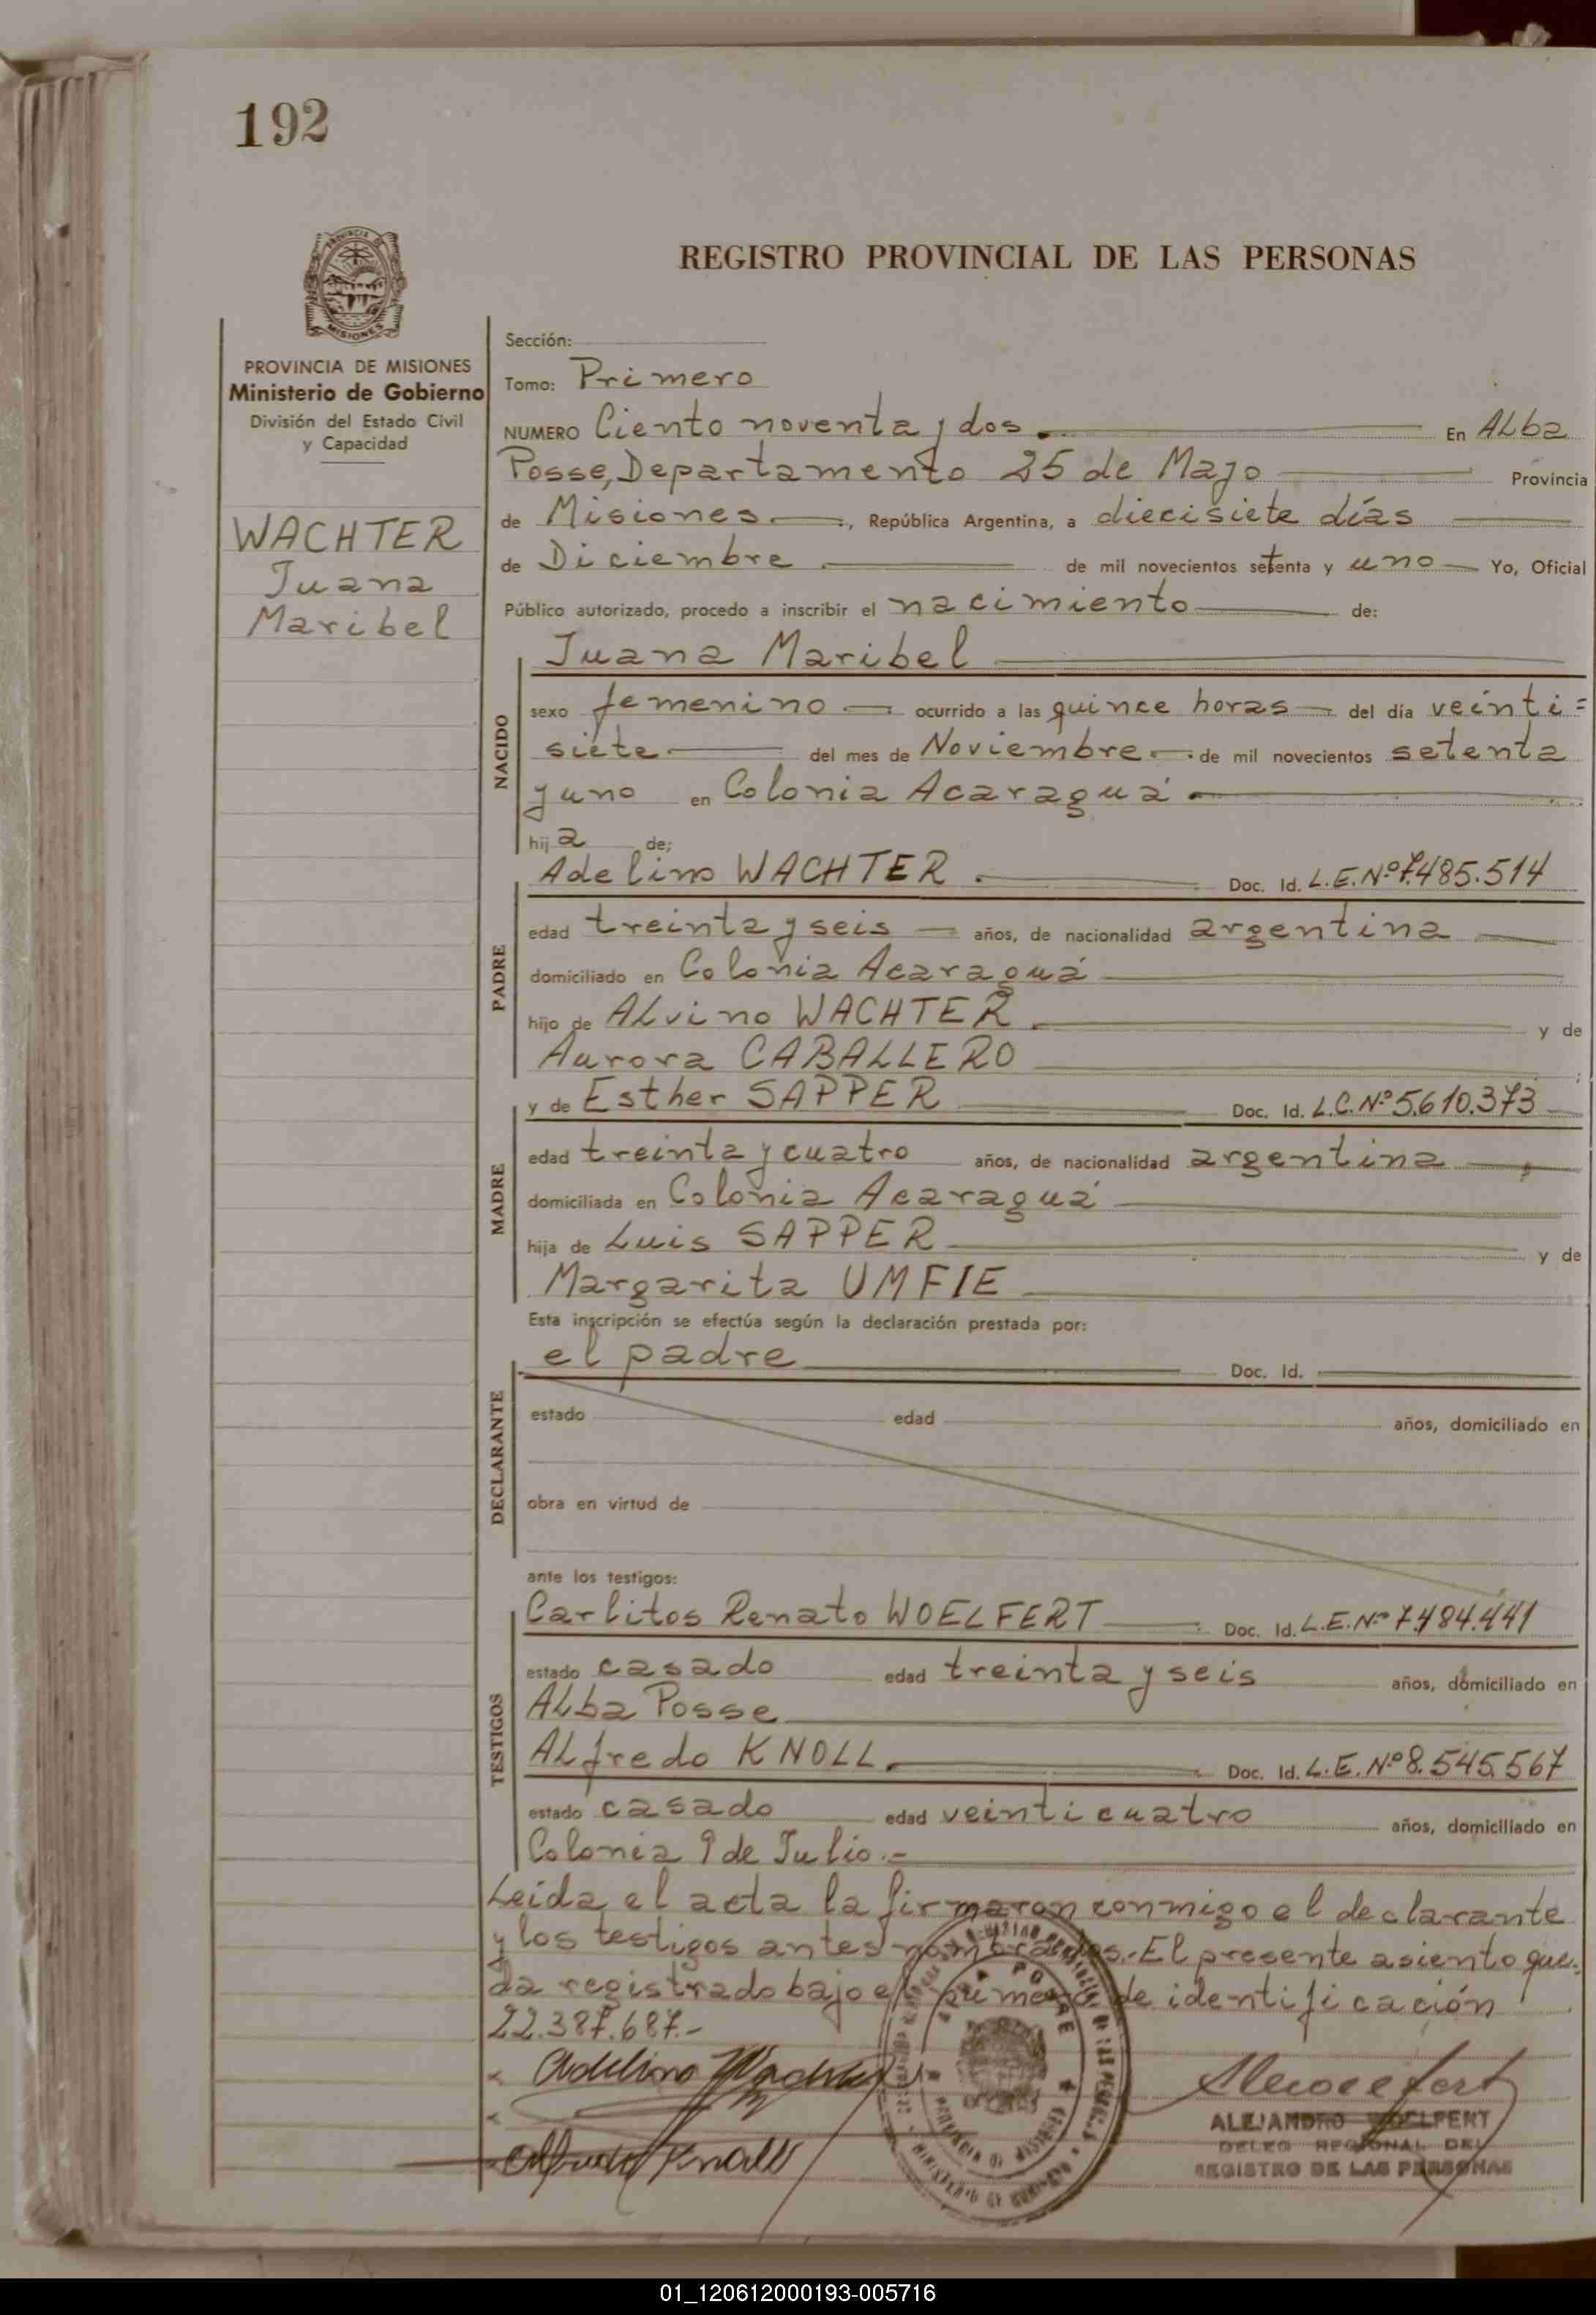 192
REGISTRO PROVINCIAL DE LAS PERSONAS
MISIONES
PROVINCIA DE MISIONES
Ministerio de Gobierno
División del Estado Civil
y Capacidad
WACHTER
Juana
Maribel
Sección:
Tomo: Primero
NUMERO Ciento noventa y dos. En Alba
Posse, Departamento 25 de Mayo Provincia
de Misiones, República Argentina, a diecisiete días
de Diciembre de mil novecientos setenta y uno Yo, Oficial
Público autorizado, procedo a inscribir el nacimiento de:
NACIDO
Juana Maribel
sexo femenino ocurrido a las quince horas del día veinti=
siete del mes de Noviembre de mil novecientos setenta
y uno en Colonia Acaraguá
hija de;
PADRE
Adelino WACHTER. Doc. Id. L.E. Nº 7.485.514
edad treinta y seis años, de nacionalidad argentina
domiciliado en Colonia Acaraguá
hijo de Alvino WACHTER y de
Aurora CABALLERO
MADRE
y de Esther SAPPER Doc. Id. L.C. Nº 5.610.373
edad treinta y cuatro años, de nacionalidad argentina
domiciliada en Colonia Acaraguá
hija de Luis SAPPER y de
Margarita UMFIE
Esta inscripción se efectúa según la declaración prestada por:
DECLARANTE
el padre Doc. Id.
estado edad años, domiciliado en
obra en virtud de
ante los testigos:
TESTIGOS
Carlitos Renato WOELFERT Doc. Id. L.E. Nº 7.484.441
estado casado edad treinta y seis años, domiciliado en
Alba Posse
Alfredo KNOLL. Doc. Id. L.E. Nº 8.545.567
estado casado edad veinticuatro años, domiciliado en
Colonia 9 de Julio.-
Leída el acta la firmaron conmigo el declarante
y los testigos antes nombrados.- El presente asiento que-
da registrado bajo el número de identificación
22.387.687.-
Adelino Wachter
Alfredo Knoll
ALBA POSSE
PROVINCIA DE MISIONES
ALEJANDRO WOELFERT
DELEG REGIONAL DEL
REGISTRO DE LAS PERSONAS
01_120612000193-005716